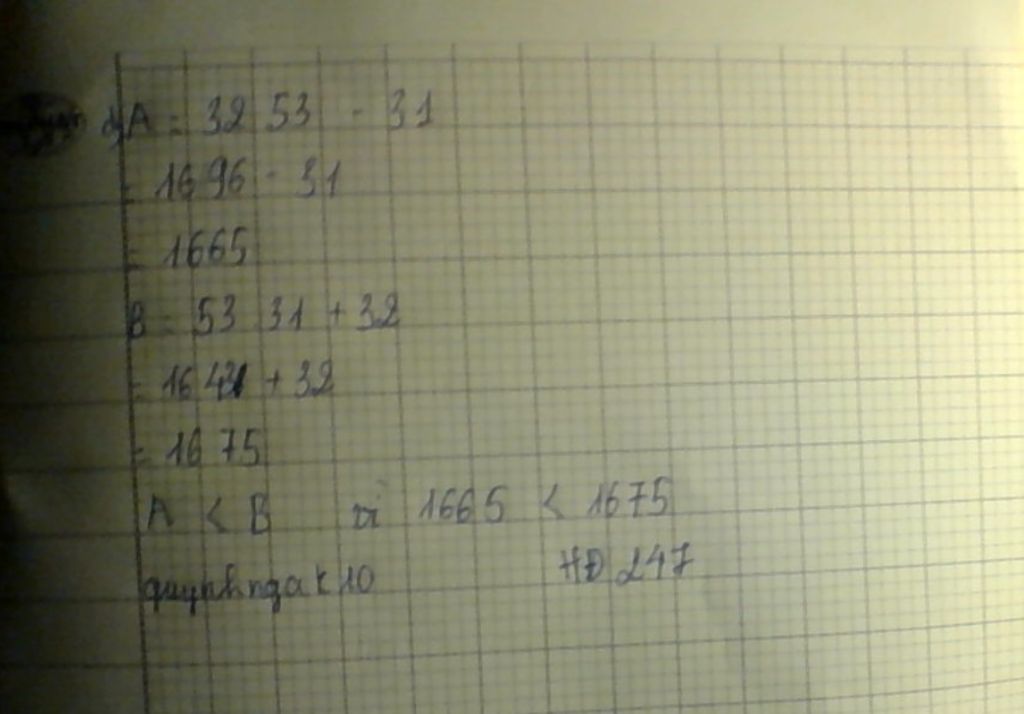 d, A = 32 53 - 31
= 1696 - 31
= 1665
B = 53 31 + 32
= 1643 + 32
= 1675
A < B vì 1665 < 1675
quynhngak10 HD 247